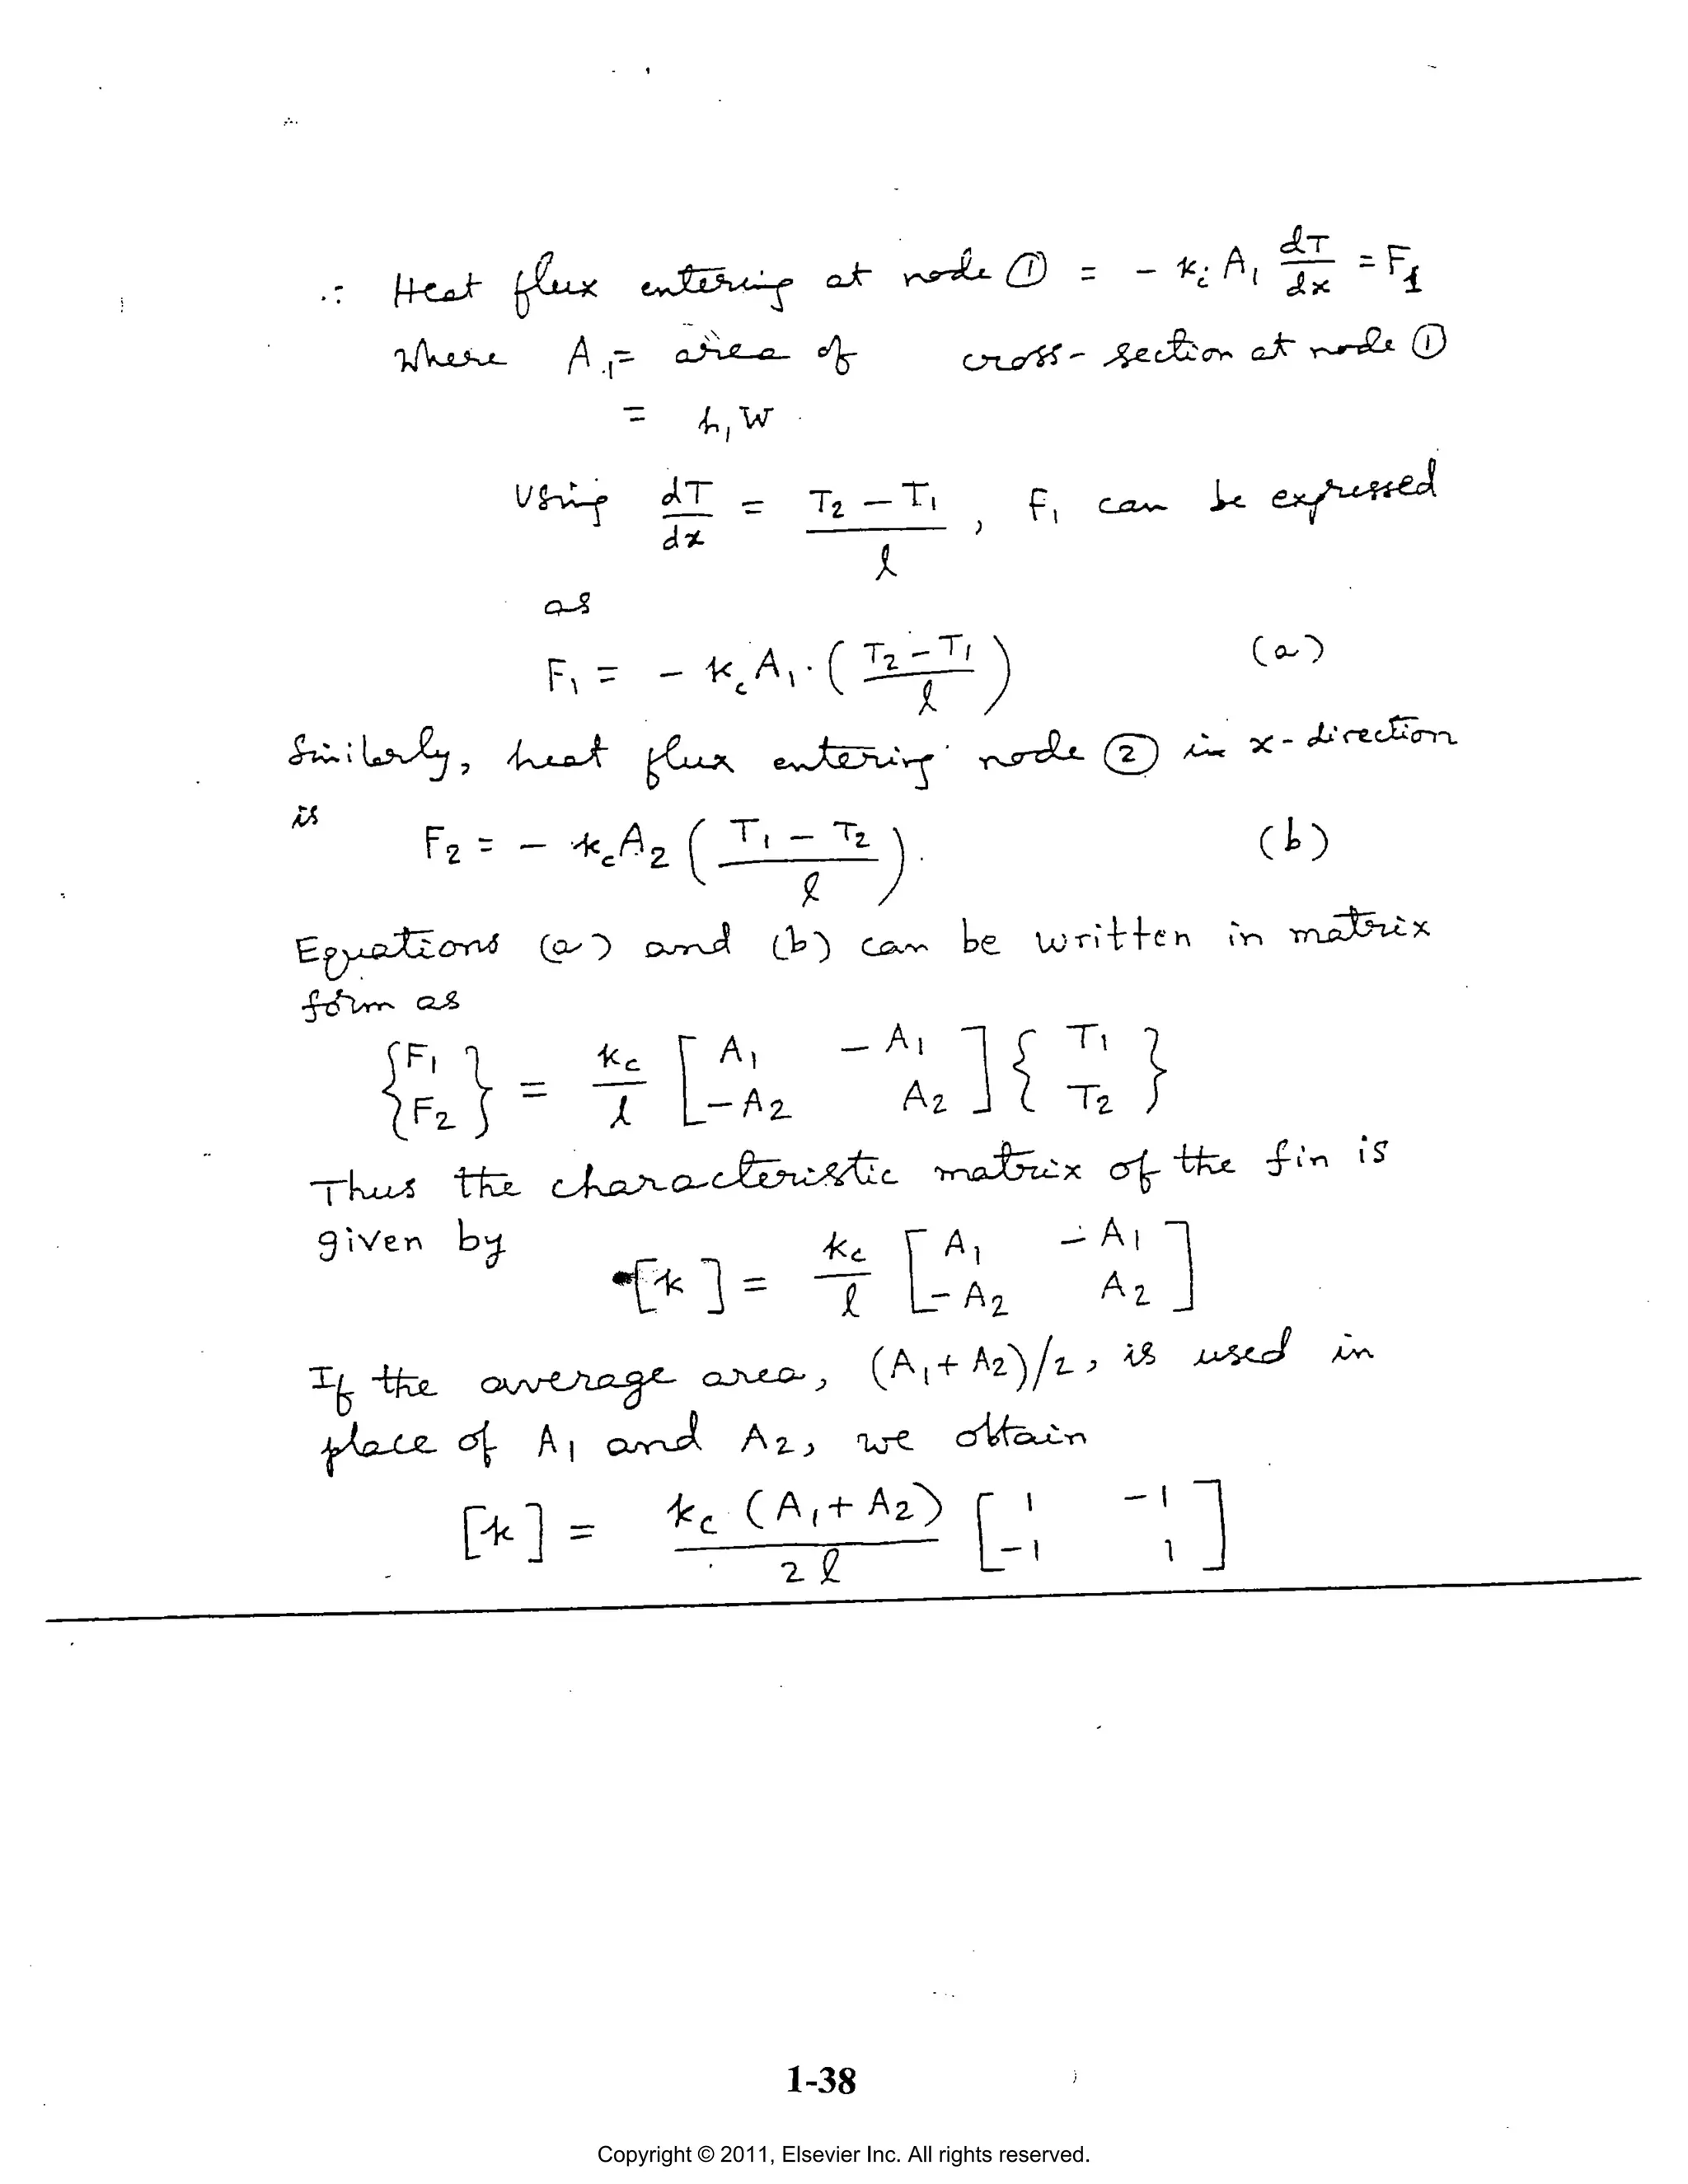 ∴ Heat flux entering at node ① = - k_c A₁ dT/dx = F₁
Where A₁ = area of cross-section at node ①
= h₁W
Using dT/dx = (T₂ - T₁)/l , F₁ can be expressed
as
F₁ = - k_c A₁ · ((T₂ - T₁)/l) (a)
Similarly, heat flux entering node ② in x-direction
is
F₂ = - k_c A₂ ((T₁ - T₂)/l) . (b)
Equations (a) and (b) can be written in matrix
form as
{F₁ F₂} = k_c/l [A₁ -A₁ -A₂ A₂] {T₁ T₂}
Thus the characteristic matrix of the fin is
given by
[k] = k_c/l [A₁ -A₁ -A₂ A₂]
If the average area, (A₁ + A₂)/2, is used in
place of A₁ and A₂, we obtain
[k] = k_c (A₁ + A₂)/2l [1 -1 -1 1]
1-38
Copyright © 2011, Elsevier Inc. All rights reserved.